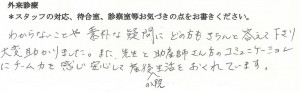 外来診療
＊スタッフの対応、待合室、診察室等お気づきの点をお書きください。
わからないことや 素朴な疑問に どの方も きちんと答えて下さり
大変助かりました。また、先生と助産師さん方のコミュニケーション
にチーム力を感じ 安心して 産後生活をおくれています。
入院